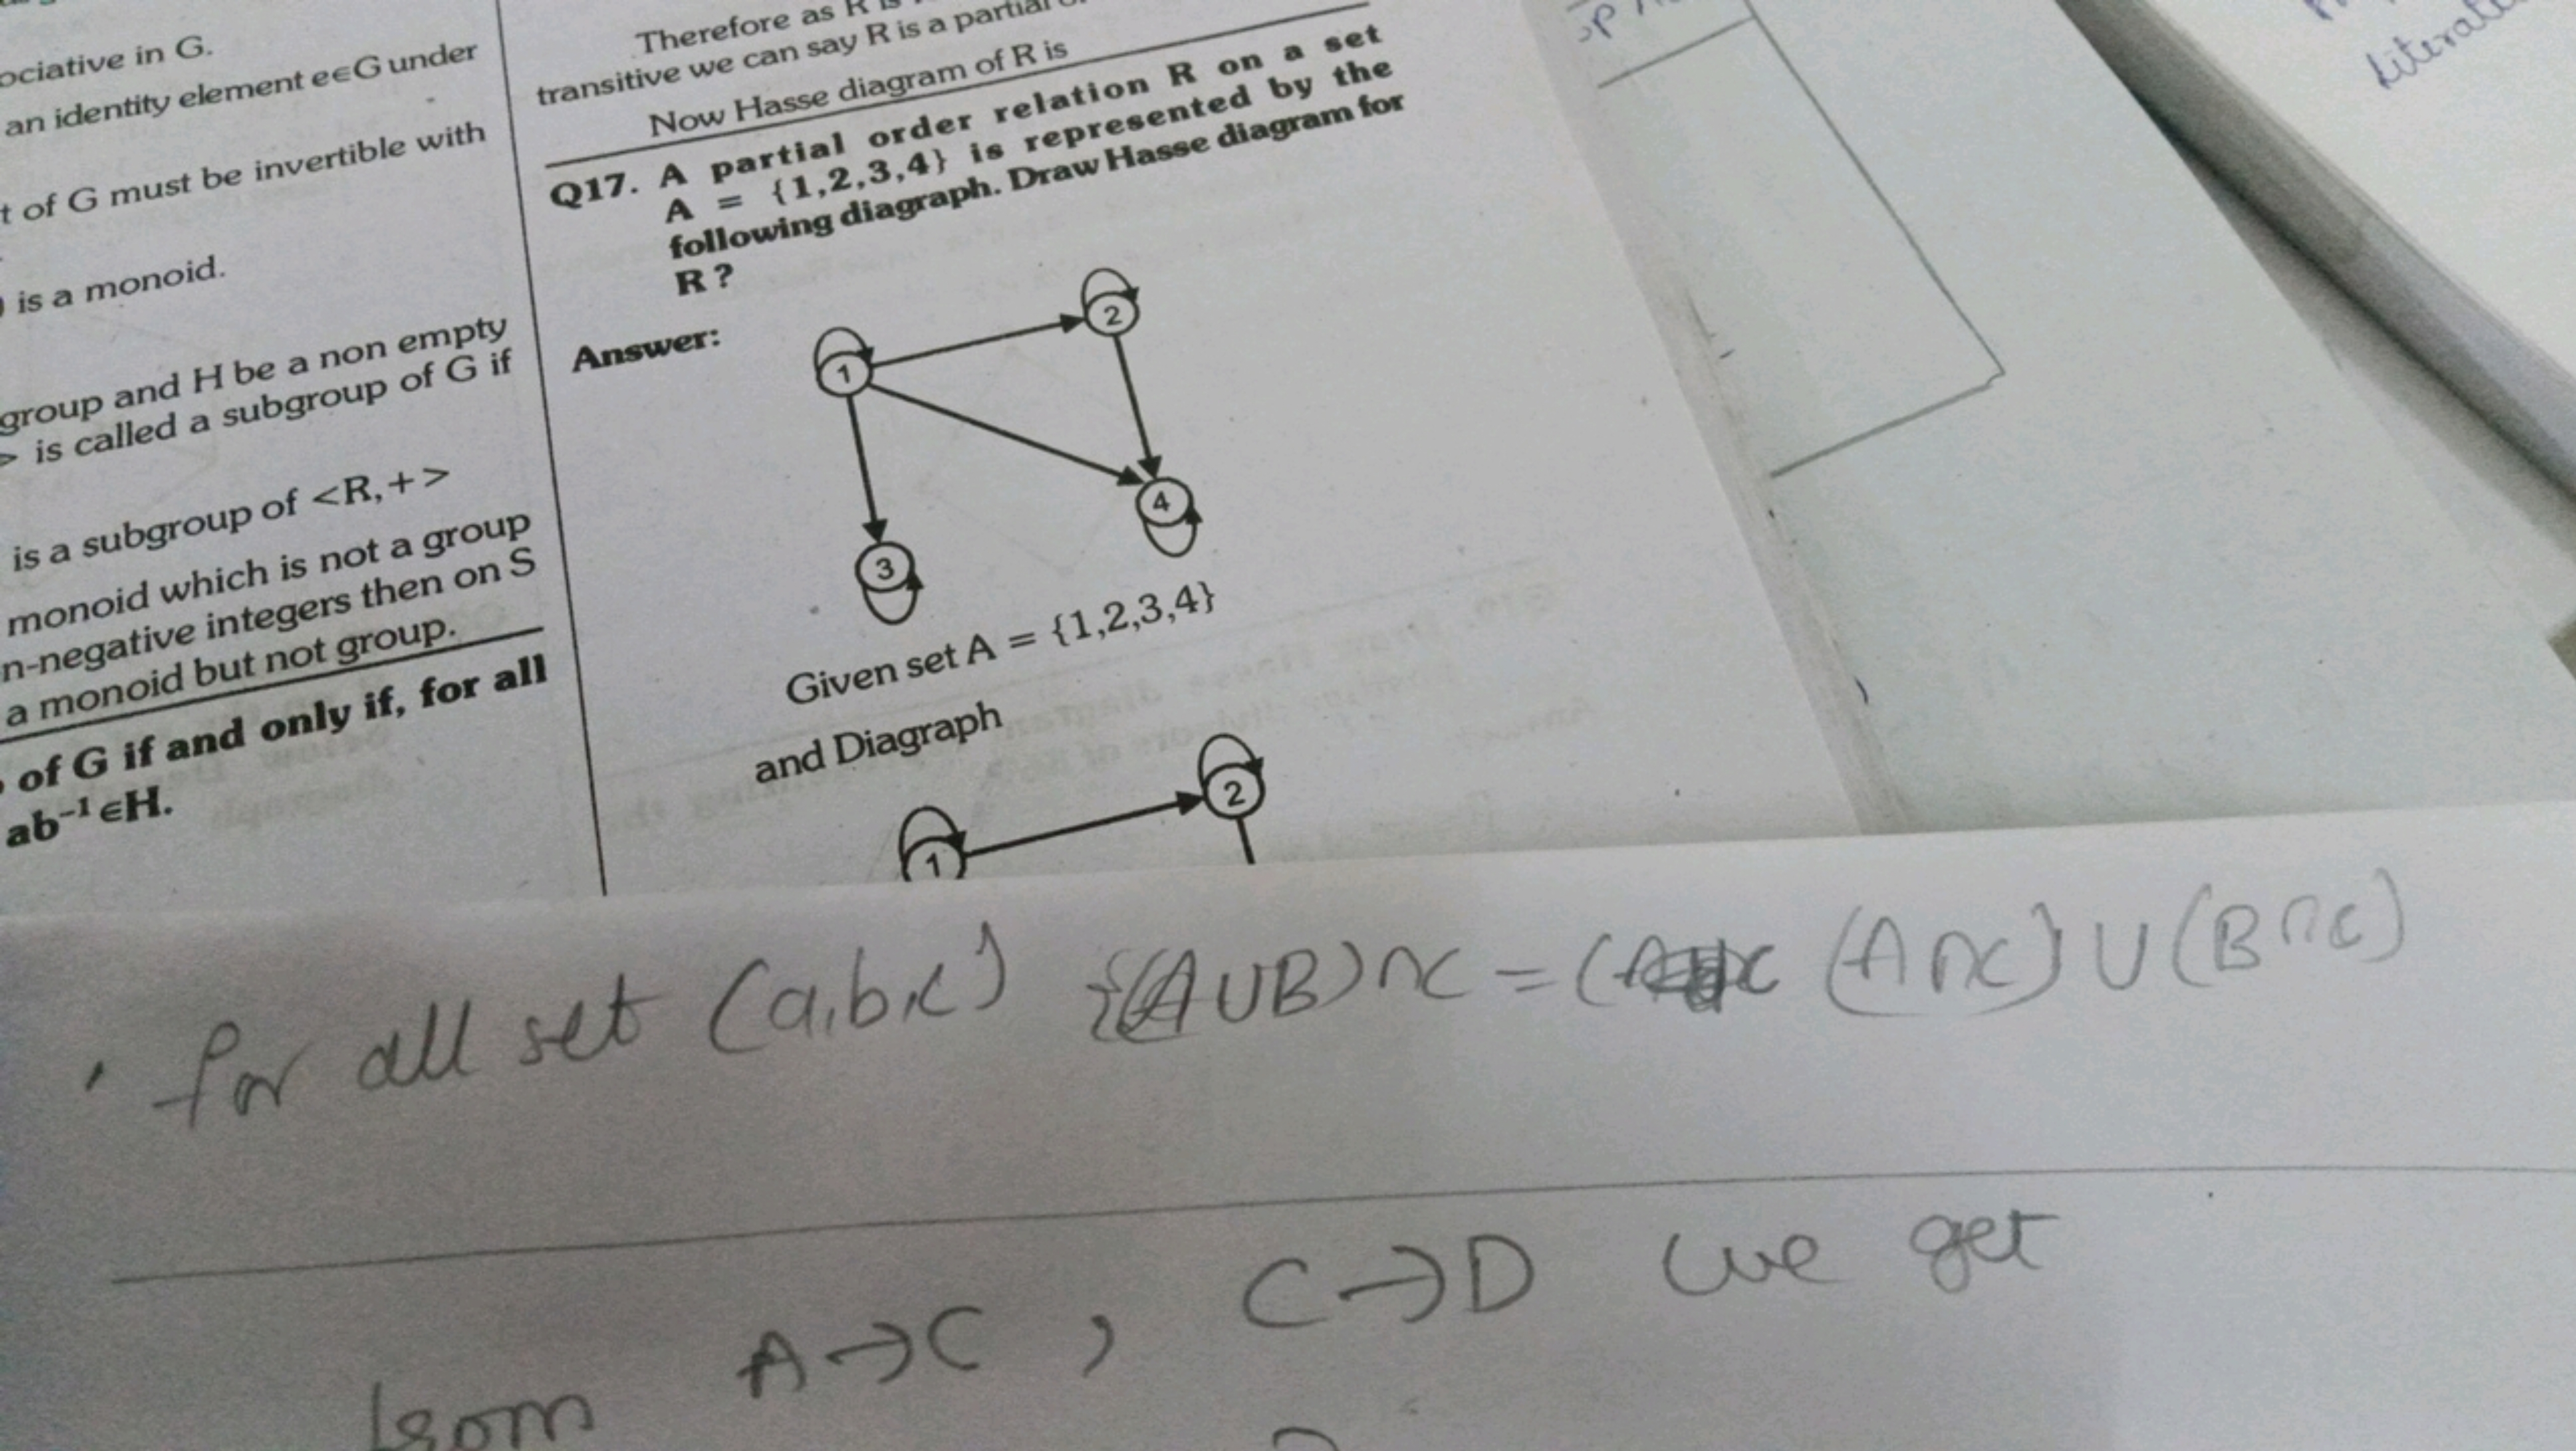 ociative in G.
an identity element e∈G under
t of G must be invertible with
is a monoid.
group and H be a non empty
> is called a subgroup of G if
is a subgroup of <R,+>
monoid which is not a group
n-negative integers then on S
a monoid but not group.
of G if and only if, for all
ab⁻¹∈H.
Therefore as R is
transitive we can say R is a partial
Now Hasse diagram of R is
Q17. A partial order relation R on a set
A = {1,2,3,4} is represented by the
following diagraph. Draw Hasse diagram for
R ?
Answer:
1
2
3
4
Given set A = {1,2,3,4}
and Diagraph
1
2
for all set (a,b,c) {(A∪B)∩C = ( (A∩C) ∪ (B∩C)
from A→C , C→D we get